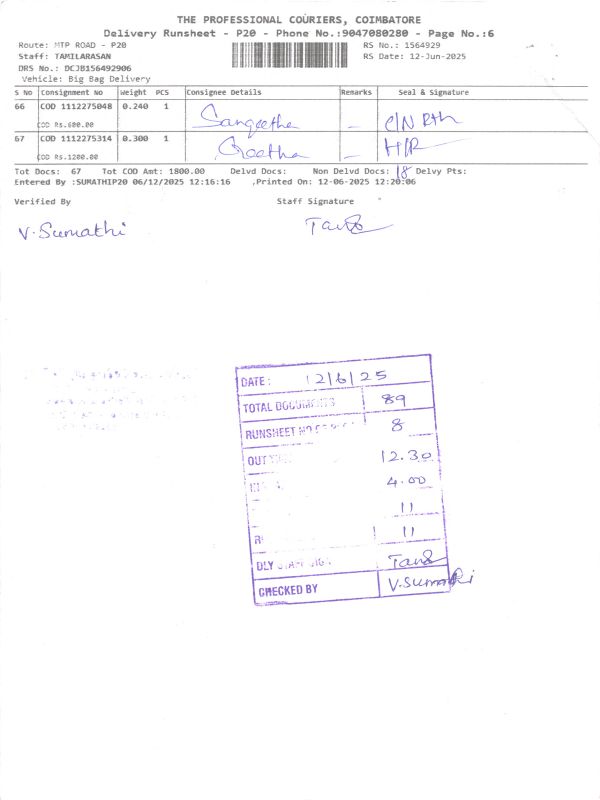 THE PROFESSIONAL COURIERS, COIMBATORE
Delivery Runsheet - P20 - Phone No.:9047080280 - Page No.:6
Route: MTP ROAD - P20 RS No.: 1564929
Staff: TAMILARASAN RS Date: 12-Jun-2025
DRS No.: DCJB156492906
Vehicle: Big Bag Delivery
S No Consignment No Weight PCS Consignee Details Remarks Seal & Signature
66 COD 1112275048 0.240 1 Sangeetha – C/N Rth
COD Rs.600.00
67 COD 1112275314 0.300 1 Geetha – H/R
COD Rs.1200.00
Tot Docs: 67 Tot COD Amt: 1800.00 Delvd Docs: Non Delvd Docs: 18 Delvy Pts:
Entered By :SUMATHIP20 06/12/2025 12:16:16 ,Printed On: 12-06-2025 12:20:06
Verified By Staff Signature
V. Sumathi
DATE: 12/6/25
TOTAL DOCUMENTS 89
RUNSHEET 8
OUT 12.30
4.00
11
11
DLY STAFF SIGN
CHECKED BY V. Sumathi